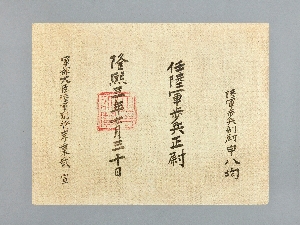 陸軍步兵副尉申八均
任陸軍步兵正尉
隆熙三年七月三十日
軍部大臣 李秉武 宣